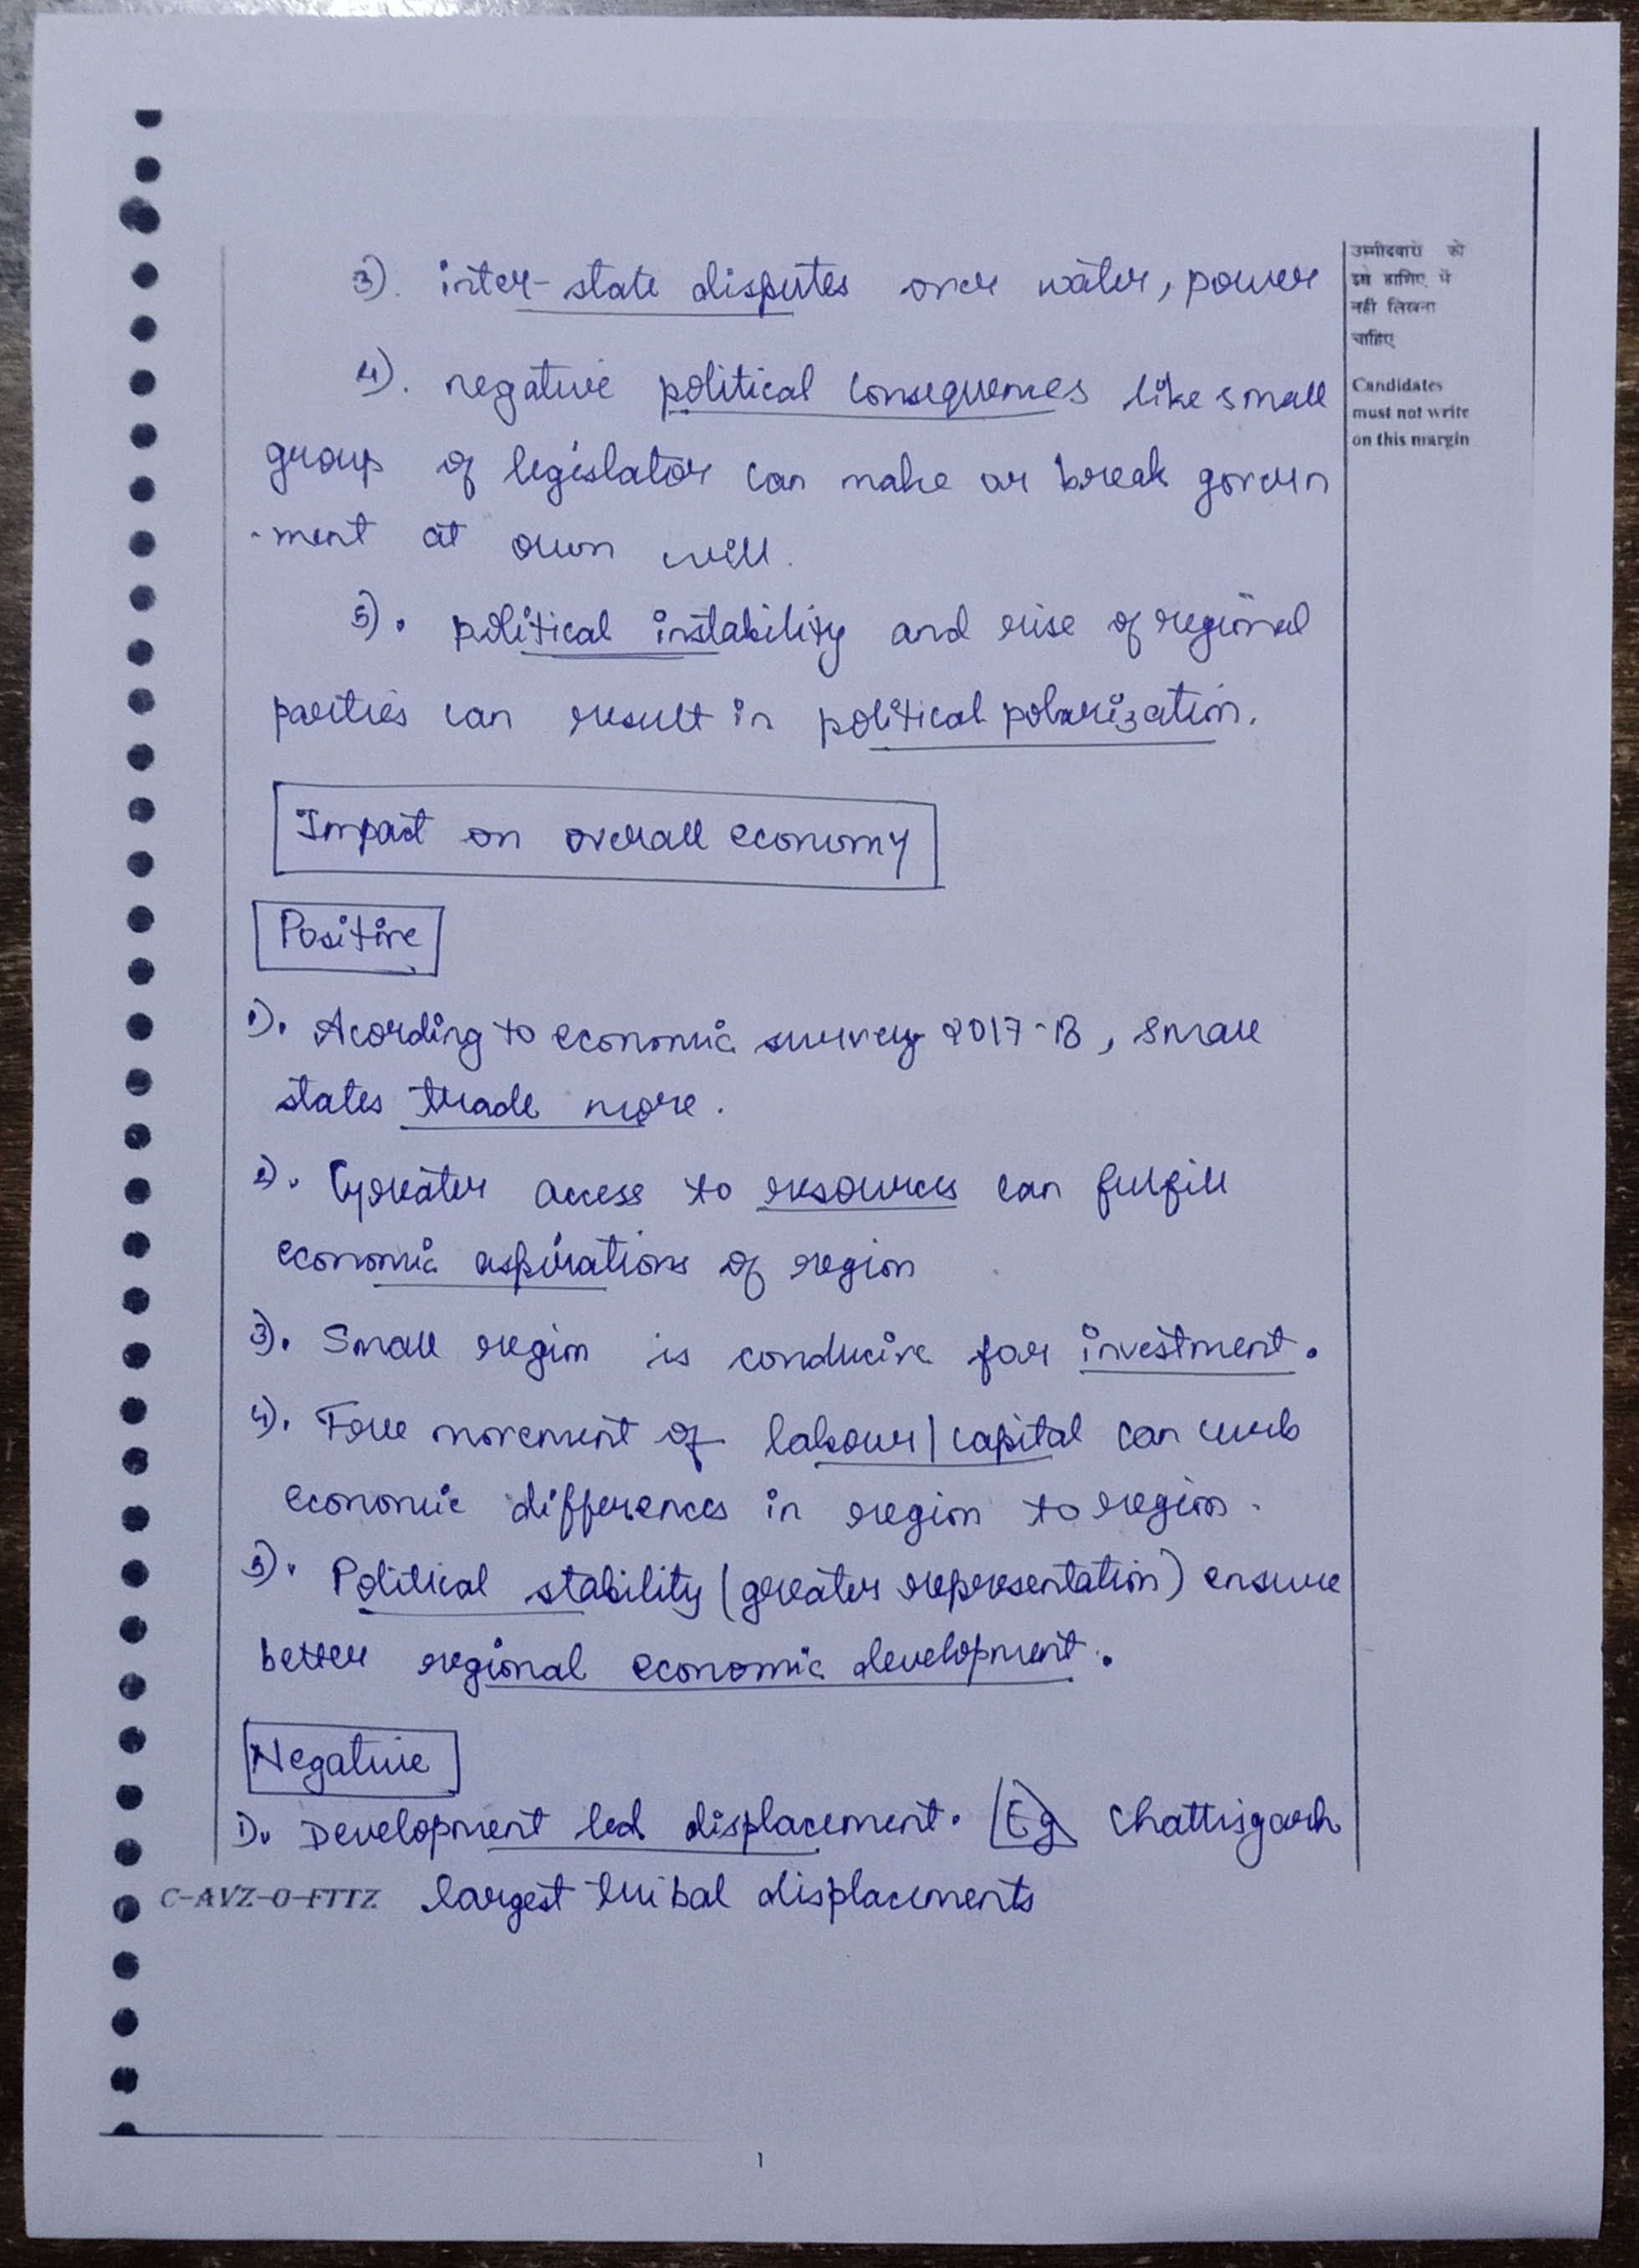 3). inter-state disputes over water, power
4). negative political consequences like small
group of legislator can make or break govern
-ment at own will.
5). political instability and rise of regional
parties can result in political polarization.
Impact on overall economy
Positive
1). Acording to economic survey 2017-18, small
states trade more.
2). Greater access to resources can fulfill
economic aspirations of region
3). Small region is conducive for investment.
4). Free movement of labour/capital can curb
economic differences in region to region.
5). Political stability (greater representation) ensure
better regional economic development.
Negative
1). Development led displacement. Eg Chattisgarh
largest tribal displacements
C-AVZ-O-FTTZ
उम्मीदवारों को
इस हाशिए में
नहीं लिखना
चाहिए
Candidates
must not write
on this margin
1